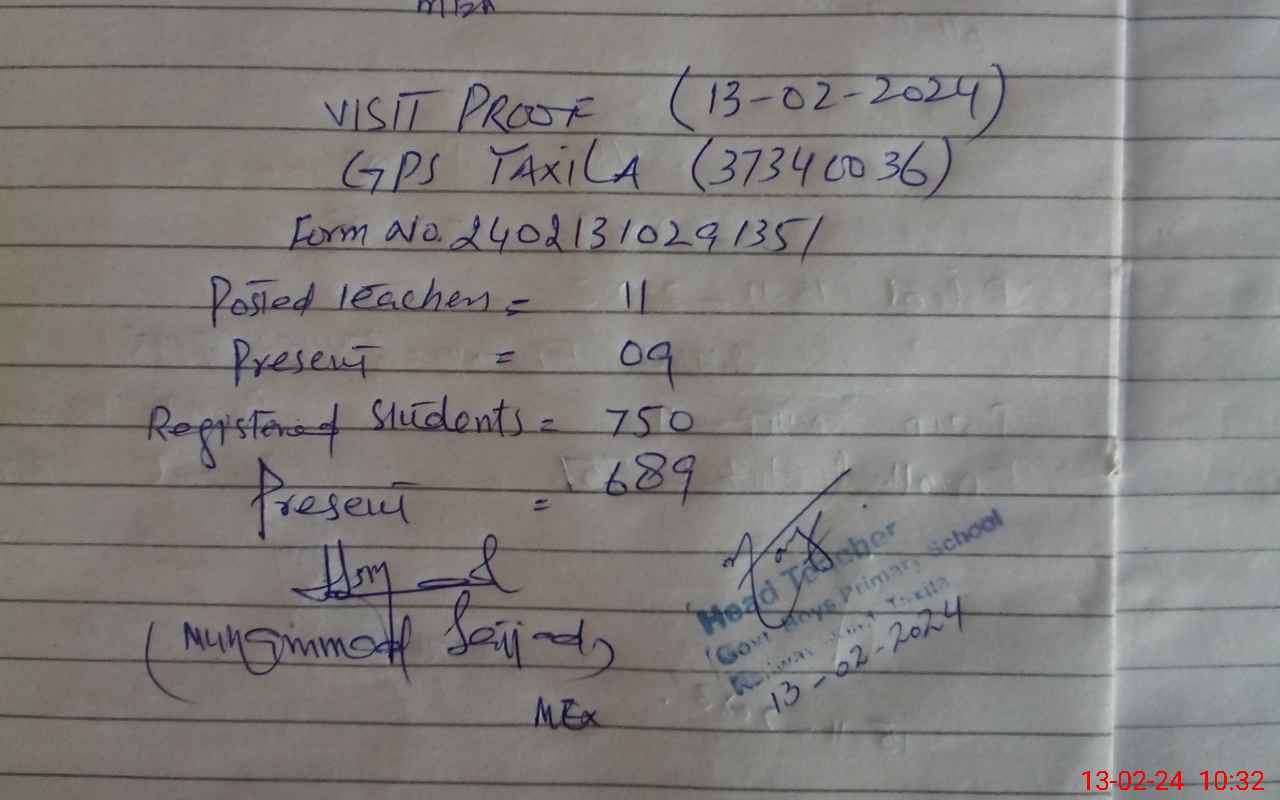 VISIT PROOF (13-02-2024)
GPS TAXILA (37340036)
Form No. 24021310291351
Posted teachers = 11
Present = 09
Registered students = 750
Present = 689
Head Teacher
Govt. Boys Primary School
Taxila
13-02-2024
(Muhammad Sajjad)
MEA
13-02-24 10:32